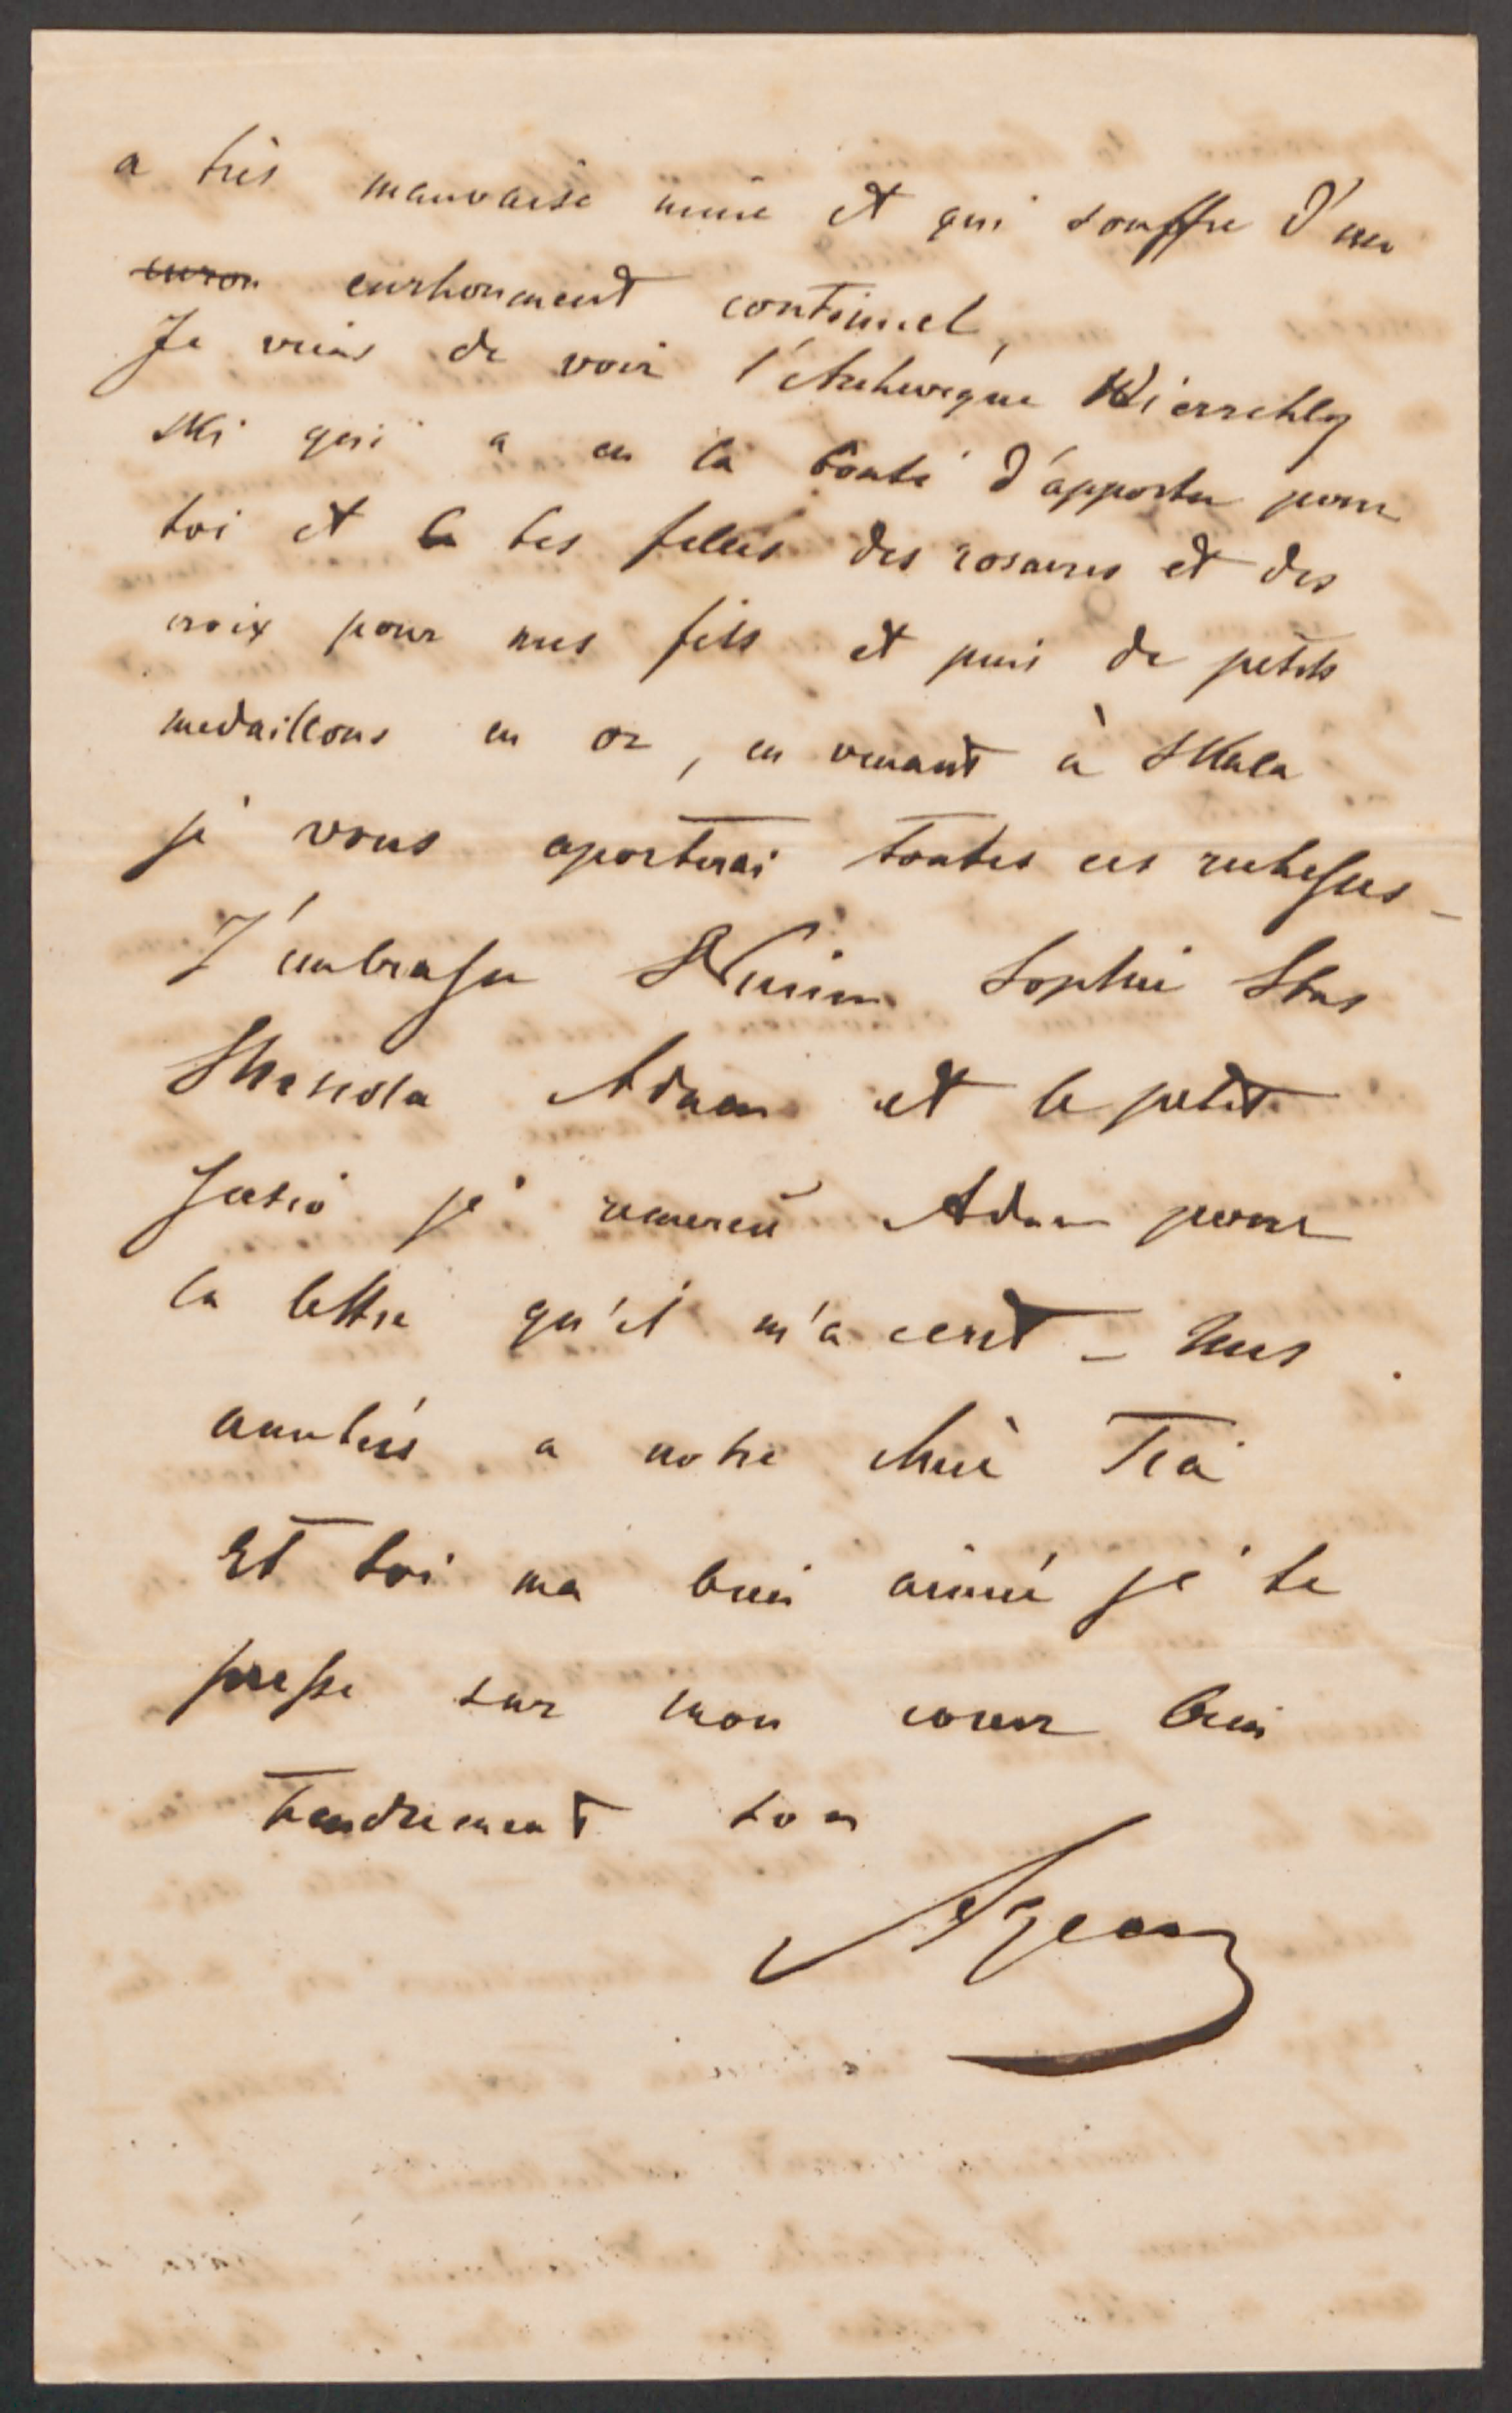 a très mauvaise mine et qui souffre d'un
enron enrhoument continuel,
Je viens de voir l'Archeveque Wierzchley
ski qui a eu la bonté d'apporter pour
toi et tes filles des rosaires et des
croix pour mes fils et puis de petits
medaillons en or, en venant à Skala
je vous aporterai toutes ces richesses_
J'embrasse Sophie Stas
Adam et le petit
Jozio je remercie Adam pour
la lettre qu'il m'a ecrit _ mes
amitiés a notre chère
Et toi ma bien aimé je te
presse sur mon coeur bien
tendrement ton